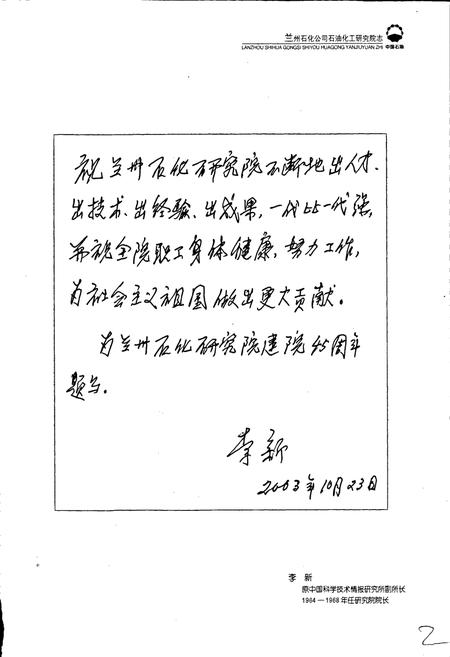 兰州石化公司石油化工研究院志
LANZHOU SHIHUA GONGSI SHIYOU HUAGONG YANJIUYUAN ZHI
中国石油
祝兰州石化研究院不断地出人才、
出技术、出经验、出成果，一代比一代强，
并祝全院职工身体健康，努力工作，
为社会主义祖国做出更大贡献。
为兰州石化研究院建院45周年
题写。
李新
2003年10月23日
李 新
原中国科学技术情报研究所副所长
1964－1968年任研究院院长
2